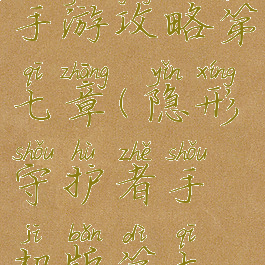 手游攻略第
qī zhāng yǐn xíng
七章(隐形
shǒu hù zhě shǒu
守护者手
jī bǎn dì qī
机版第七